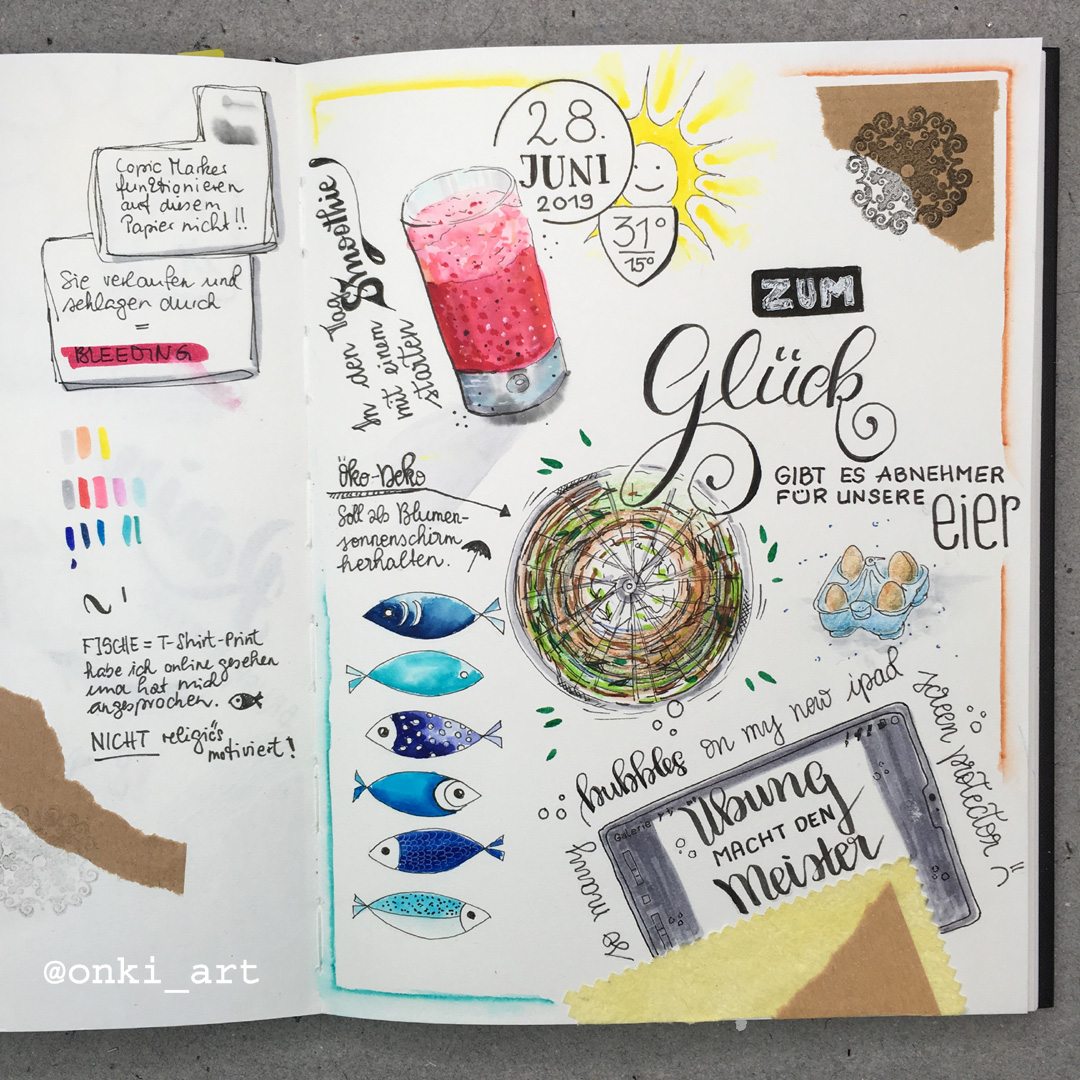 Copic Marker
funktionieren
auf diesem
Papier nicht!!
Sie verlaufen und
schlagen durch
=
BLEEDING
FISCHE = T-Shirt-Print
habe ich online gesehen
und hat mich
angesprochen.
NICHT religiös
motiviert!
@onki_art
28.
JUNI
2019
31°
15°
In den Tag
mit einem Smoothie
starten
ZUM
Glück
GIBT ES ABNEHMER
FÜR UNSERE eier
Öko-Deko
Soll als Blumen-
sonnenschirm
herhalten.
so many bubbles on my new ipad screen protector
Galerie
Übung
MACHT DEN
Meister